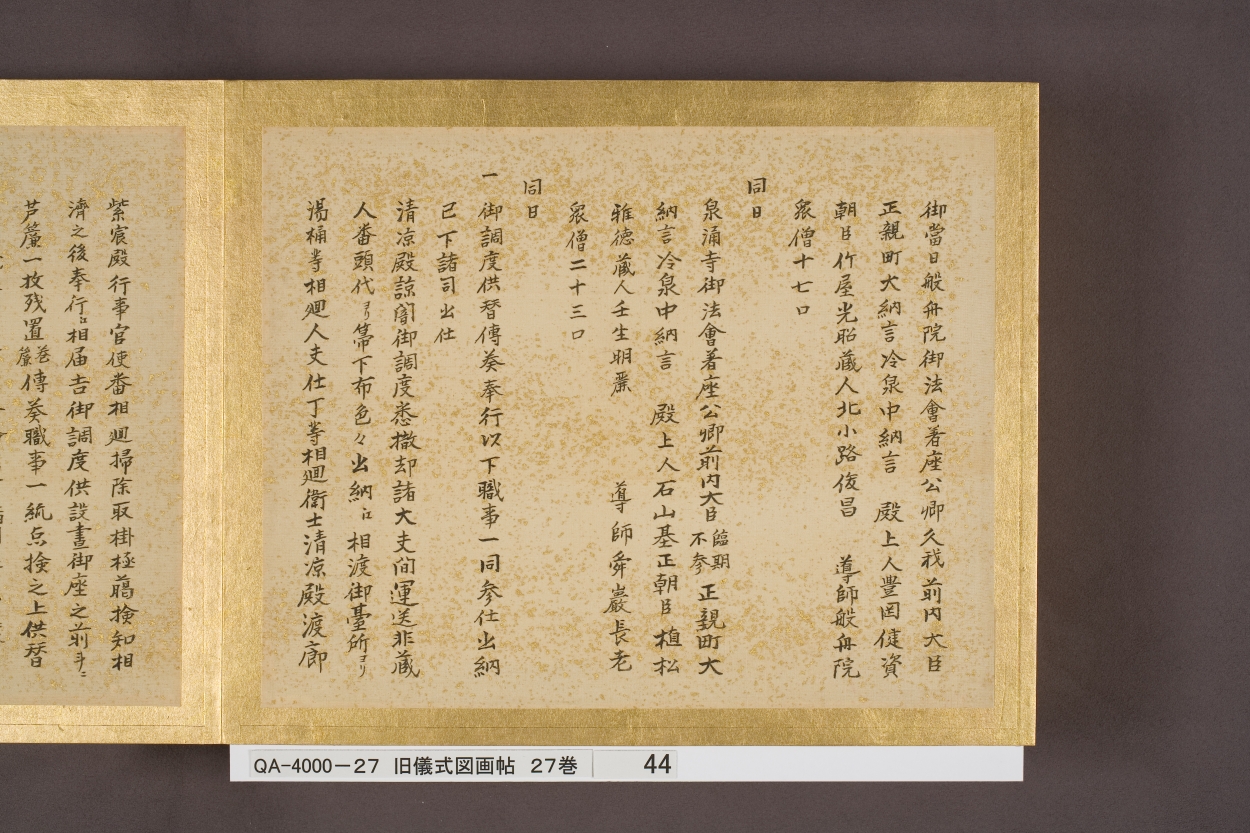 御當日般舟院御法會着座公卿久我前内大臣
正親町大納言冷泉中納言　殿上人豊岡健資
朝臣竹屋光昭蔵人北小路俊昌　導師般舟院
衆僧十七口
同日
泉涌寺御法會着座公卿前内大臣臨期不参正親町大
納言冷泉中納言　殿上人石山基正朝臣植松
雅徳蔵人壬生明麗　導師舜巌長老
衆僧二十三口
同日
一御調度供替傳奏奉行以下職事一同参仕出納
已下諸司出仕
清凉殿諒闇御調度悉撤却諸大夫間運送非蔵
人番頭代ヨリ簾下布色々出納江相渡御臺所ヨリ
湯桶等相廻人夫仕丁等相廻衛士清凉殿渡廊
紫宸殿行事官使番相廻掃除取掛極﨟検知相
濟之後奉行江相届吉御調度供設晝御座之前ヲニ
芦簾一枚残置巻簾傳奏職事一統点検之上供替
QA-4000-27 旧儀式図画帖 27巻 44